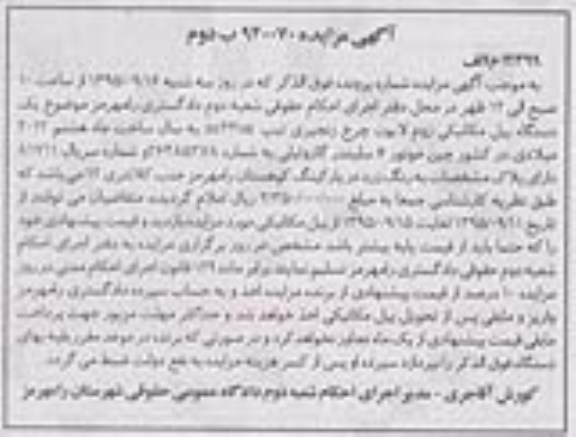 آگهی مزایده ۹۲۰۰۷۰ ب دوم
م/الف
به موجب آگهی مزایده شماره پرونده فوق الذکر که در روز سه شنبه ۱۳۹۵/۰۹/۱۶ از ساعت ۱۰
صبح الی ۱۲ ظهر در محل دفتر اجرای احکام حقوقی شعبه دوم دادگستری رامهرمز موضوع یک
دستگاه بیل مکانیکی زوم لایون چرخ زنجیری تیپ به سال ساخت ماه هشتم ۲۰۱۲
میلادی در کشور چین موتور ۶ سیلندر گازوئیلی به شماره و شماره سریال
دارای پلاک مشخصات به رنگ زرد در پارکینگ کوهستان رامهرمز جنب کلانتری ۱۲ می‌باشد که
طبق نظریه کارشناسی جمعا به مبلغ ریال اعلام گردیده متقاضیان می توانند از
تاریخ ۱۳۹۵/۰۹/۱۱ لغایت ۱۳۹۵/۰۹/۱۵ از بیل مکانیکی مورد مزایده بازدید و قیمت پیشنهادی خود
را که حتما باید از قیمت پایه بیشتر باشد مشخص در روز برگزاری مزایده به دفتر اجرای احکام
شعبه دوم حقوقی دادگستری رامهرمز تسلیم نمایند برابر ماده ۱۲۹ قانون اجرای احکام مدنی در روز
مزایده ۱۰ درصد از قیمت پیشنهادی از برنده مزایده اخذ و به حساب سپرده دادگستری رامهرمز
واریز و مابقی پس از تحویل بیل مکانیکی اخذ خواهد شد و حداکثر مهلت مزبور جهت پرداخت
مابقی قیمت پیشنهادی از یک ماه تجاوز نخواهد کرد و در صورتی که برنده در موعد مقرر بقیه بهای
دستگاه فوق الذکر را نپردازد سپرده او پس از کسر هزینه مزایده به نفع دولت ضبط می گردد.
کورش آقاجری - مدیر اجرای احکام شعبه دوم دادگاه عمومی حقوقی شهرستان رامهرمز